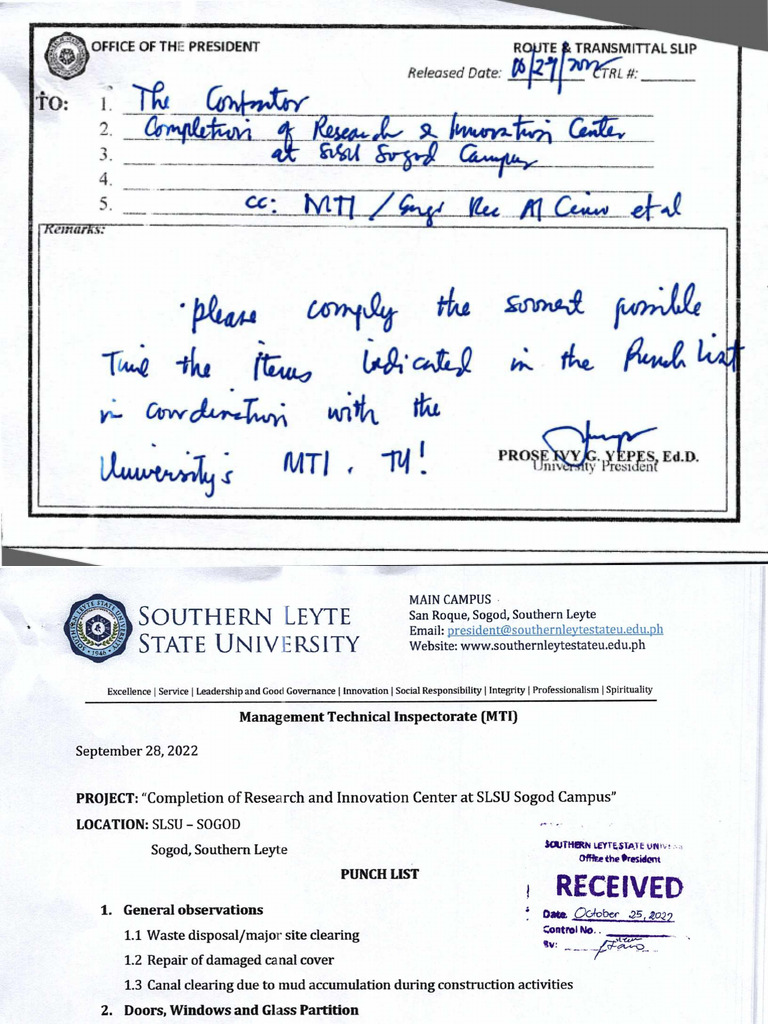 OFFICE OF THE PRESIDENT
ROUTE & TRANSMITTAL SLIP
Released Date: CTRL #:
TO: 1. The Contractor
2. Completion of Research & Innovation Center
3. at SLSU Sogod Campus
4.
5. cc: MTI / Engr et al
Remarks:
Please comply the soonest possible
Time the items indicated in the Punch List
in coordination with the
University's MTI. TY!
PROSE IVY G. YEPES, Ed.D.
University President
SOUTHERN LEYTE
STATE UNIVERSITY
MAIN CAMPUS
San Roque, Sogod, Southern Leyte
Email: president@southernleytestateu.edu.ph
Website: www.southernleytestateu.edu.ph
Excellence | Service | Leadership and Good Governance | Innovation | Social Responsibility | Integrity | Professionalism | Spirituality
Management Technical Inspectorate (MTI)
September 28, 2022
PROJECT: "Completion of Research and Innovation Center at SLSU Sogod Campus"
LOCATION: SLSU – SOGOD
Sogod, Southern Leyte
PUNCH LIST
SOUTHERN LEYTE STATE
Office the President
RECEIVED
Date. October 25, 2022
Control No..
By:
1. General observations
1.1 Waste disposal/major site clearing
1.2 Repair of damaged canal cover
1.3 Canal clearing due to mud accumulation during construction activities
2. Doors, Windows and Glass Partition